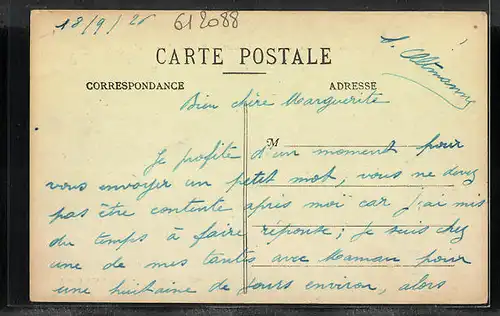 18/9/26
612088
A. Altmann
CARTE POSTALE
CORRESPONDANCE
ADRESSE
Bien chère Marguerite
M
Je profite d'un moment pour
vous envoyer un petit mot, vous ne devez
pas être contente après moi car j'ai mis
du temps à faire réponse; je suis chez
une de mes tantes avec Maman pour
une huitaine de jours environ, alors